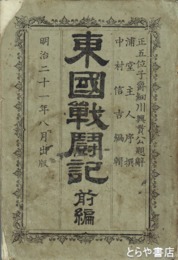 正五位子爵細川興貫公題辭
浦堂主人序撰
中村信吉編輯
東國戰鬪記 前編
明治二十一年八月出版
とらや書店